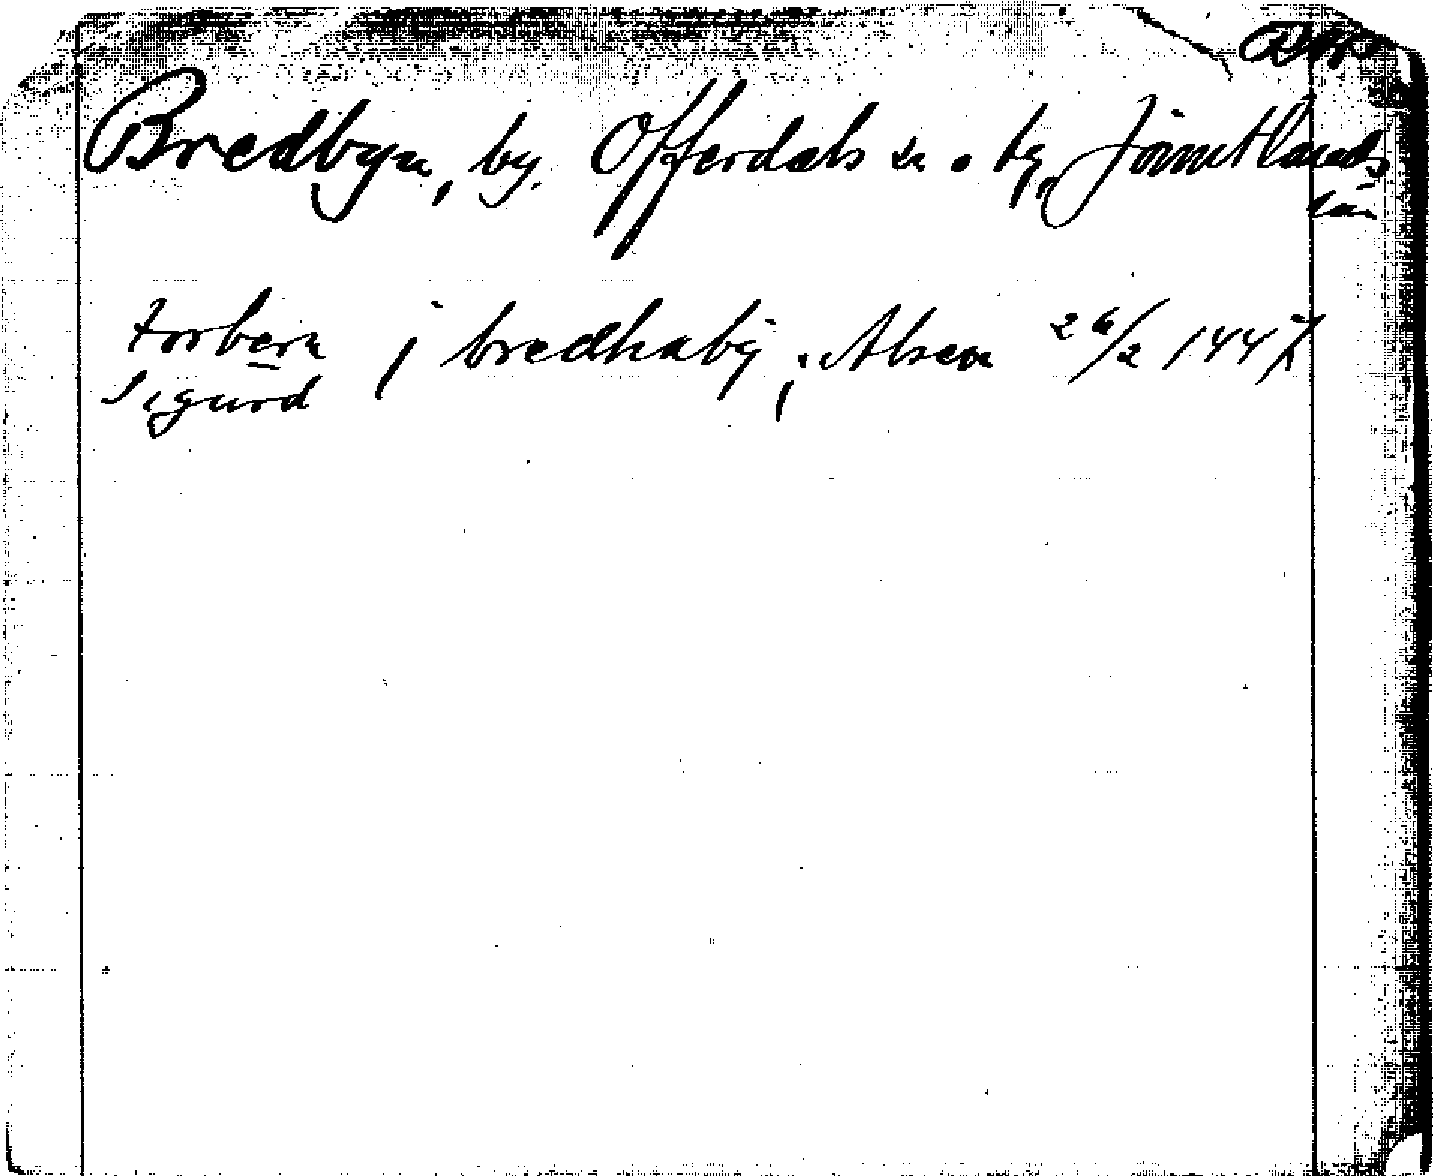 Bredbyn, by. Offerdals sn. o. tg, Jämtlands
län
torbern j bredhaby, Alsen 26/2 1447
Sigurd